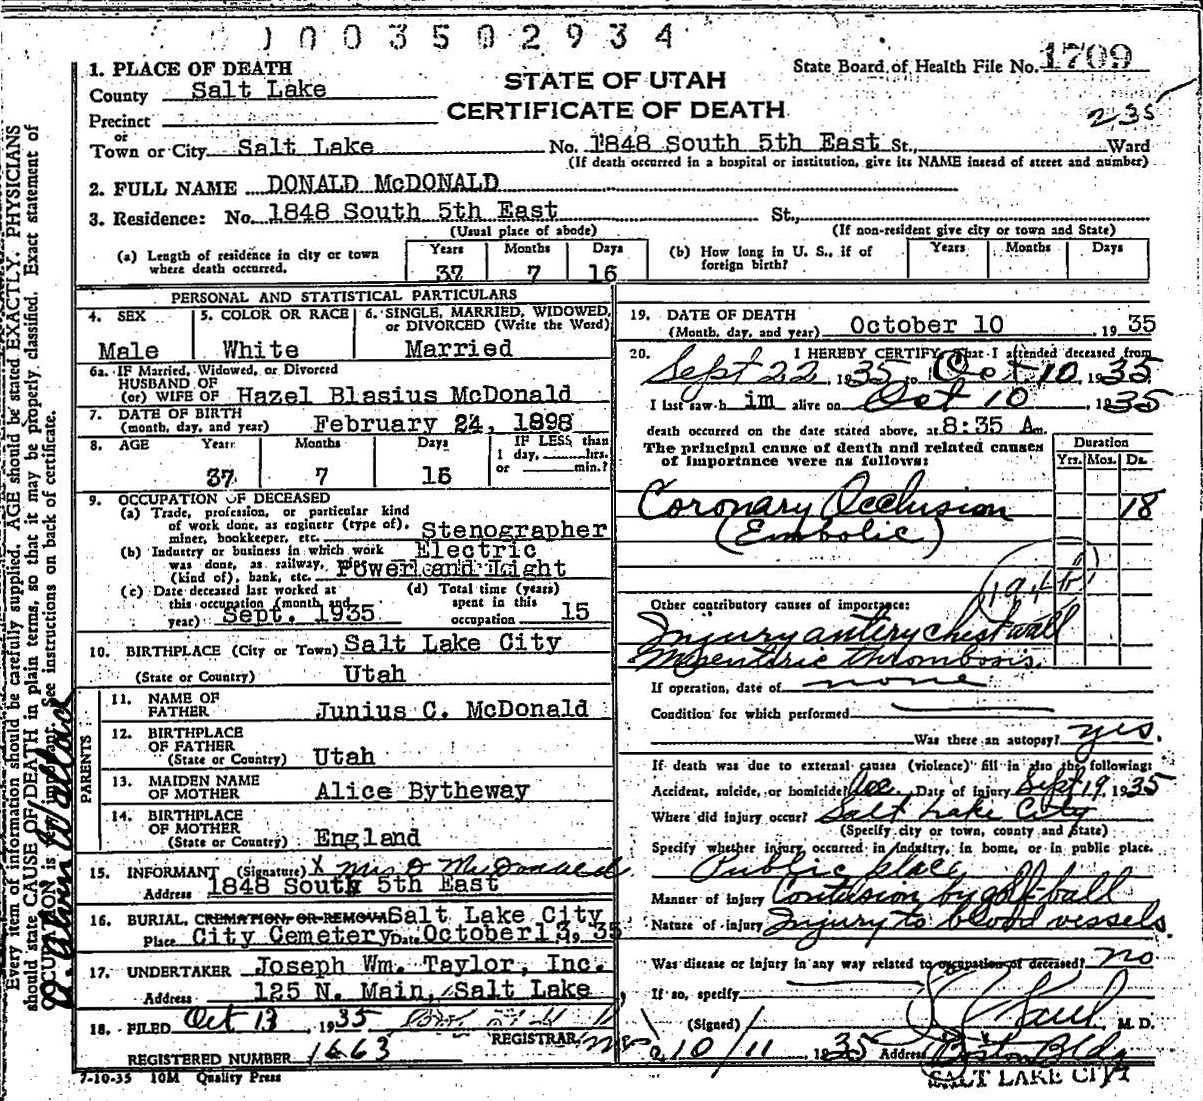 1003502934
1. PLACE OF DEATH
County Salt Lake
Precinct
or
Town or City Salt Lake
STATE OF UTAH
CERTIFICATE OF DEATH
State Board of Health File No. 1709
235
No. 1848 South 5th East St., Ward
(If death occurred in a hospital or institution, give its NAME insead of street and number)
2. FULL NAME DONALD McDONALD
3. Residence: No. 1848 South 5th East St.,
(Usual place of abode) (If non-resident give city or town and State)
(a) Length of residence in city or town where death occurred. Years 37 Months 7 Days 16
(b) How long in U. S., if of foreign birth? Years Months Days
PERSONAL AND STATISTICAL PARTICULARS
4. SEX Male
5. COLOR OR RACE White
6. SINGLE, MARRIED, WIDOWED, or DIVORCED (Write the Word) Married
6a. IF Married, Widowed, or Divorced
HUSBAND OF
(or) WIFE OF Hazel Blasius McDonald
7. DATE OF BIRTH
(month, day, and year) February 24, 1898
8. AGE Years 37 Months 7 Days 16 IF LESS than
1 day, hrs.
or min.?
9. OCCUPATION OF DECEASED
(a) Trade, profession, or particular kind
of work done, as engineer (type of),
miner, bookkeeper, etc. Stenographer
(b) Industry or business in which work
was done, as railway, mine
(kind of), bank, etc. Electric Power and Light
(c) Date deceased last worked at
this occupation (month and
year) Sept. 1935
(d) Total time (years)
spent in this
occupation 15
10. BIRTHPLACE (City or Town) Salt Lake City
(State or Country) Utah
PARENTS
11. NAME OF
FATHER Junius C. McDonald
12. BIRTHPLACE
OF FATHER
(State or Country) Utah
13. MAIDEN NAME
OF MOTHER Alice Bytheway
14. BIRTHPLACE
OF MOTHER
(State or Country) England
15. INFORMANT (Signature) X Mrs D McDonald
Address 1848 South 5th East
16. BURIAL, CREMATION OR REMOVAL Salt Lake City
Place City Cemetery Date October 13, 35
17. UNDERTAKER Joseph Wm. Taylor, Inc.
Address 125 N. Main, Salt Lake
18. FILED Oct 13, 1935
REGISTRAR
REGISTERED NUMBER 1663
7-10-35 10M Quality Press
19. DATE OF DEATH
(Month, day, and year) October 10, 1935
20. I HEREBY CERTIFY, That I attended deceased from
Sept 22, 1935 to Oct 10, 1935
I last saw h im alive on Oct 10, 1935
death occurred on the date stated above, at 8:35 Am.
The principal cause of death and related causes
of importance were as follows:
Duration
Yrs. Mos. Ds.
Coronary Occlusion 18
(Embolic)
(194b)
Other contributory causes of importance:
Injury antery chest wall
Mesenteric thrombosis
If operation, date of none
Condition for which performed
Was there an autopsy? yes.
If death was due to external causes (violence) fill in also the following:
Accident, suicide, or homicide? Acc. Date of injury Sept 19, 1935
Where did injury occur? Salt Lake City
(Specify city or town, county and State)
Specify whether injury occurred in industry, in home, or in public place.
Public place
Manner of injury Contusion by golf-ball
Nature of injury Injury to blood vessels.
Was disease or injury in any way related to occupation of deceased? no
If so, specify
(Signed) M. D.
10/11, 1935 Address Boston Bldg
SALT LAKE CITY
Every item of information should be carefully supplied. AGE should be stated EXACTLY. PHYSICIANS
should state CAUSE OF DEATH in plain terms, so that it may be properly classified. Exact statement of
OCCUPATION is very important. See instructions on back of certificate.